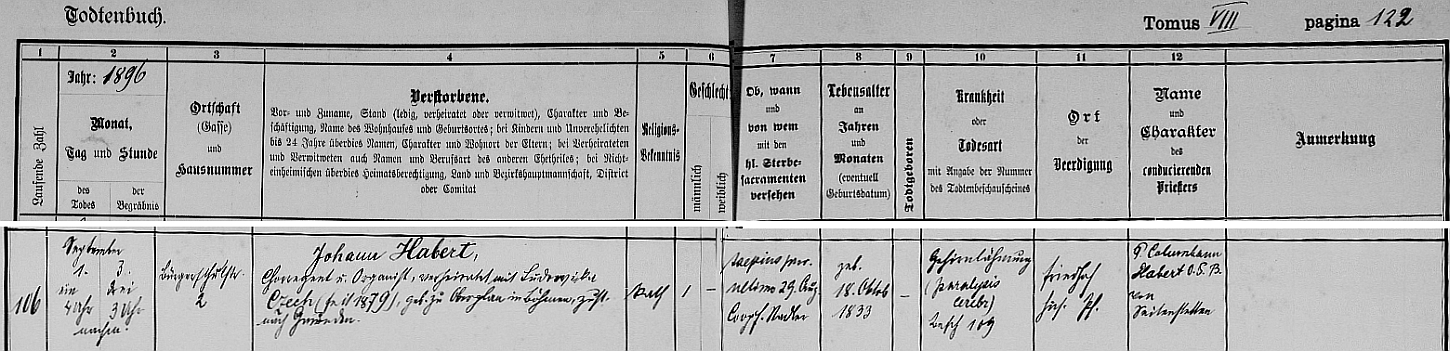 Todtenbuch.
Tomus VIII pagina 122
1 2 3 4 5 6 7 8 9 10 11 12
Laufende Zahl
Jahr: 1896
Monat,
Tag und Stunde
des Todes
der Begräbnis
Ortschaft
(Gasse)
und
Hausnummer
Verstorbene.
Vor- und Zuname, Stand (ledig, verheiratet oder verwitwet), Charakter und Be-
schäftigung, Name des Wohnhauses und Geburtsortes; bei Kindern und Unverehelichten
bis 24 Jahre überdies Namen, Charakter und Wohnort der Eltern; bei Verheirateten
und Verwitweten auch Namen und Berufsart des anderen Ehetheiles; bei Nicht-
einheimischen überdies Heimatsberechtigung, Land und Bezirkshauptmannschaft, District
oder Comitat
Religions-
Bekenntnis
Geschlecht
männlich
weiblich
Ob, wann
und
von wem
mit den
hl. Sterbe-
sacramenten
versehen
Lebensalter
an
Jahren
und
Monaten
(eventuell
Geburtsdatum)
Todtgeboren
Krankheit
oder
Todesart
mit Angabe der Nummer
des Todtenbeschauscheines
Ort
der
Beerdigung
Name
und
Charakter
des
conducierenden
Priesters
Anmerkung
106
September
1. 3.
um drei
4 Uhr 3 Uhr
nachm.
Bürgerschulstr.
2
Johann Habert,
Chorregent u. Organist, verheiratet mit Ludowika
Czech (seit 1879), geb. zu Oberplan in Böhmen, zust.
nach Gmunden.
kath
1
–
saepius prov.
ultimo 29. Aug.
Coop. Stadler
geb.
18. Oktob
1833
–
Gehirnlähmung
(paralysis
cerebri)
Besch 109
Friedhof
hies. Pf.
P. Columbann
Habert O.S.B.
von
Seitenstetten